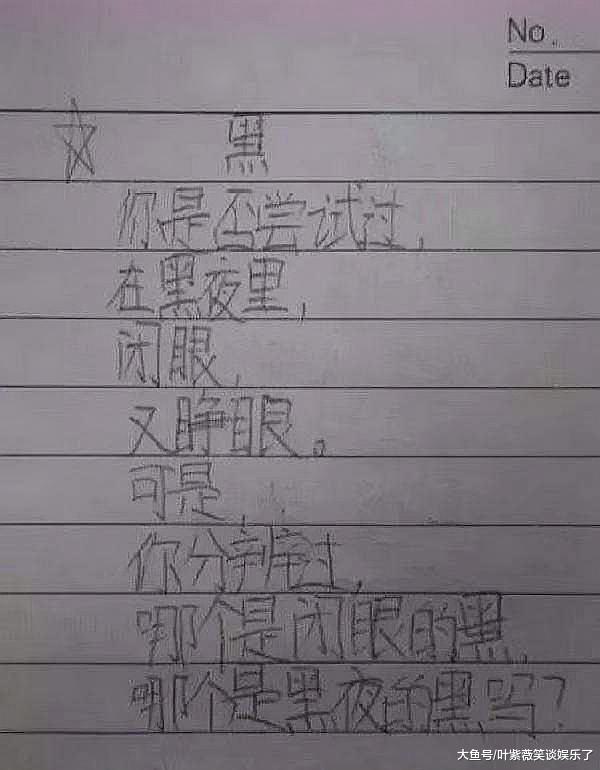 No.
Date
☆ 黑
你是否尝试过,
在黑夜里,
闭眼,
又睁眼。
可是,
你分辨过,
哪个是闭眼的黑,
哪个是黑夜的黑吗?
大鱼号/叶紫薇笑谈娱乐了